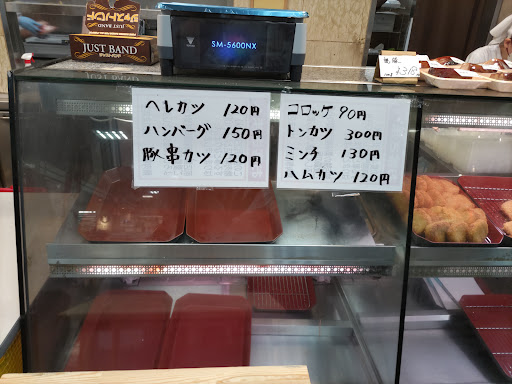 ジャストバンド
JUST BAND
SM-5600NX
ヘレカツ 120円
ハンバーグ 150円
豚串カツ 120円
コロッケ 90円
トンカツ 300円
ミンチ 130円
ハムカツ 120円